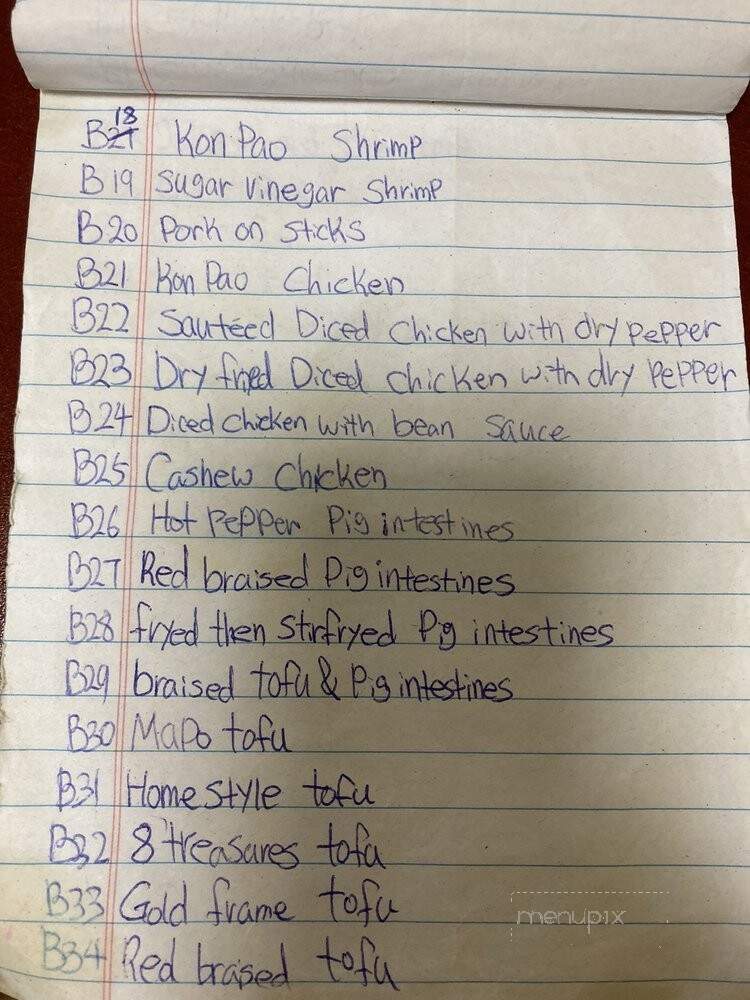 B18 Kon Pao Shrimp
B19 sugar vinegar Shrimp
B20 Pork on sticks
B21 Kon Pao Chicken
B22 Sautéed Diced Chicken with dry pepper
B23 Dry fried Diced chicken with dry pepper
B24 Diced chicken with bean sauce
B25 Cashew chicken
B26 Hot pepper Pig intestines
B27 Red braised Pig intestines
B28 fryed then stirfryed Pig intestines
B29 braised tofu & Pig intestines
B30 Mapo tofu
B31 Home style tofu
B32 8 treasures tofu
B33 Gold frame tofu
menupix
B34 Red braised tofu